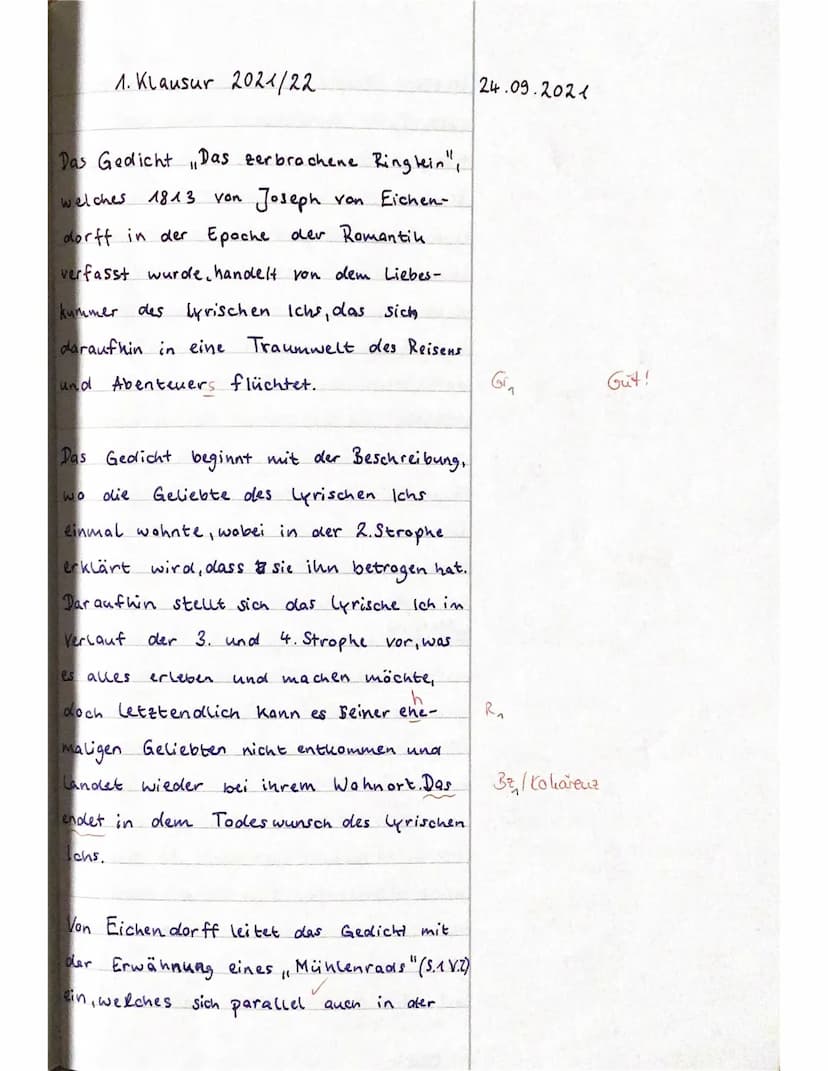 1. Klausur 2021/22
24.09.2021
Das Gedicht „Das zerbrochene Ringlein",
welches 1813 von Joseph von Eichen-
dorff in der Epoche der Romantik
verfasst wurde, handelt von dem Liebes-
kummer des lyrischen Ichs, das sich
daraufhin in eine Traumwelt des Reisens
und Abenteuers flüchtet.
Gr1 Gut!
Das Gedicht beginnt mit der Beschreibung,
wo die Geliebte des Lyrischen Ichs
einmal wohnte, wobei in der 2. Strophe
erklärt wird, dass sie ihn betrogen hat.
Daraufhin stellt sich das lyrische Ich im
Verlauf der 3. und 4. Strophe vor, was
es alles erleben und machen möchte,
doch letztendlich kann es seiner ehe-
h
R1
maligen Geliebten nicht entkommen und
landet wieder bei ihrem Wohnort. Das
Bz1/Kohärenz
endet in dem Todeswunsch des lyrischen
Ichs.
Von Eichendorff leitet das Gedicht mit
der Erwähnung eines „Mühlenrads" (S.1 V.2)
ein, welches sich parallel auch in der